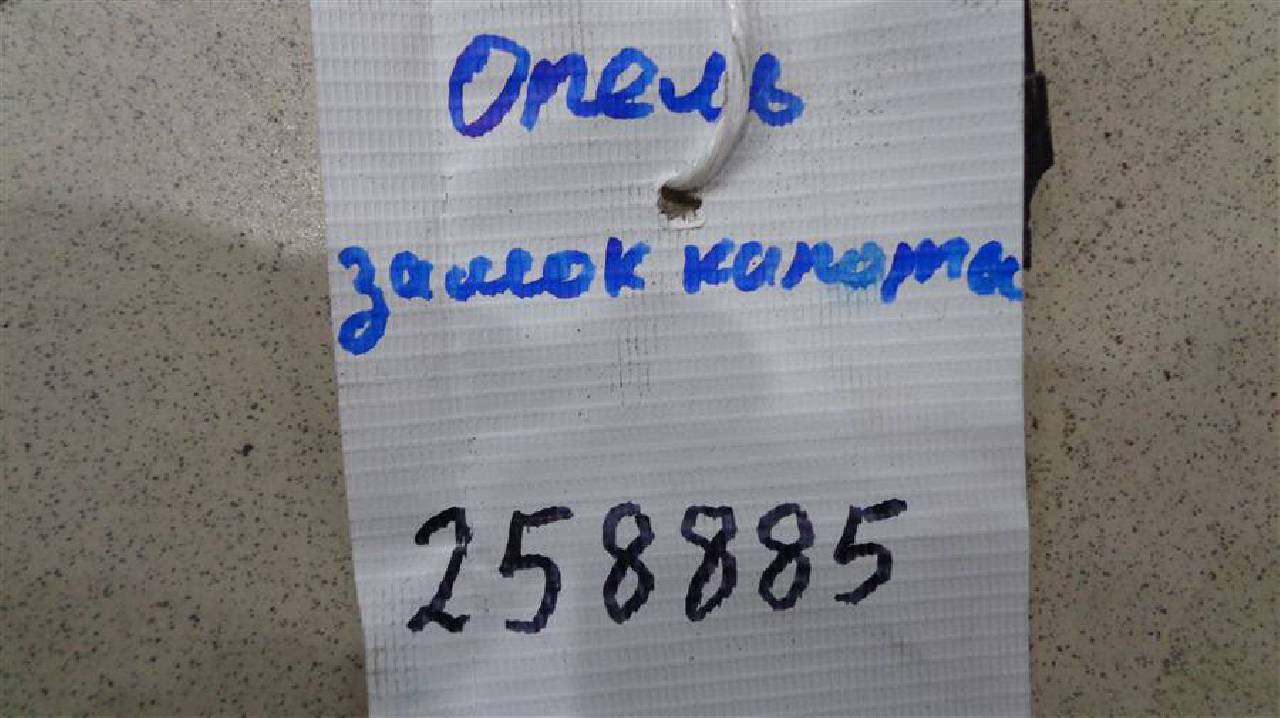 Опель
замок капота
258885